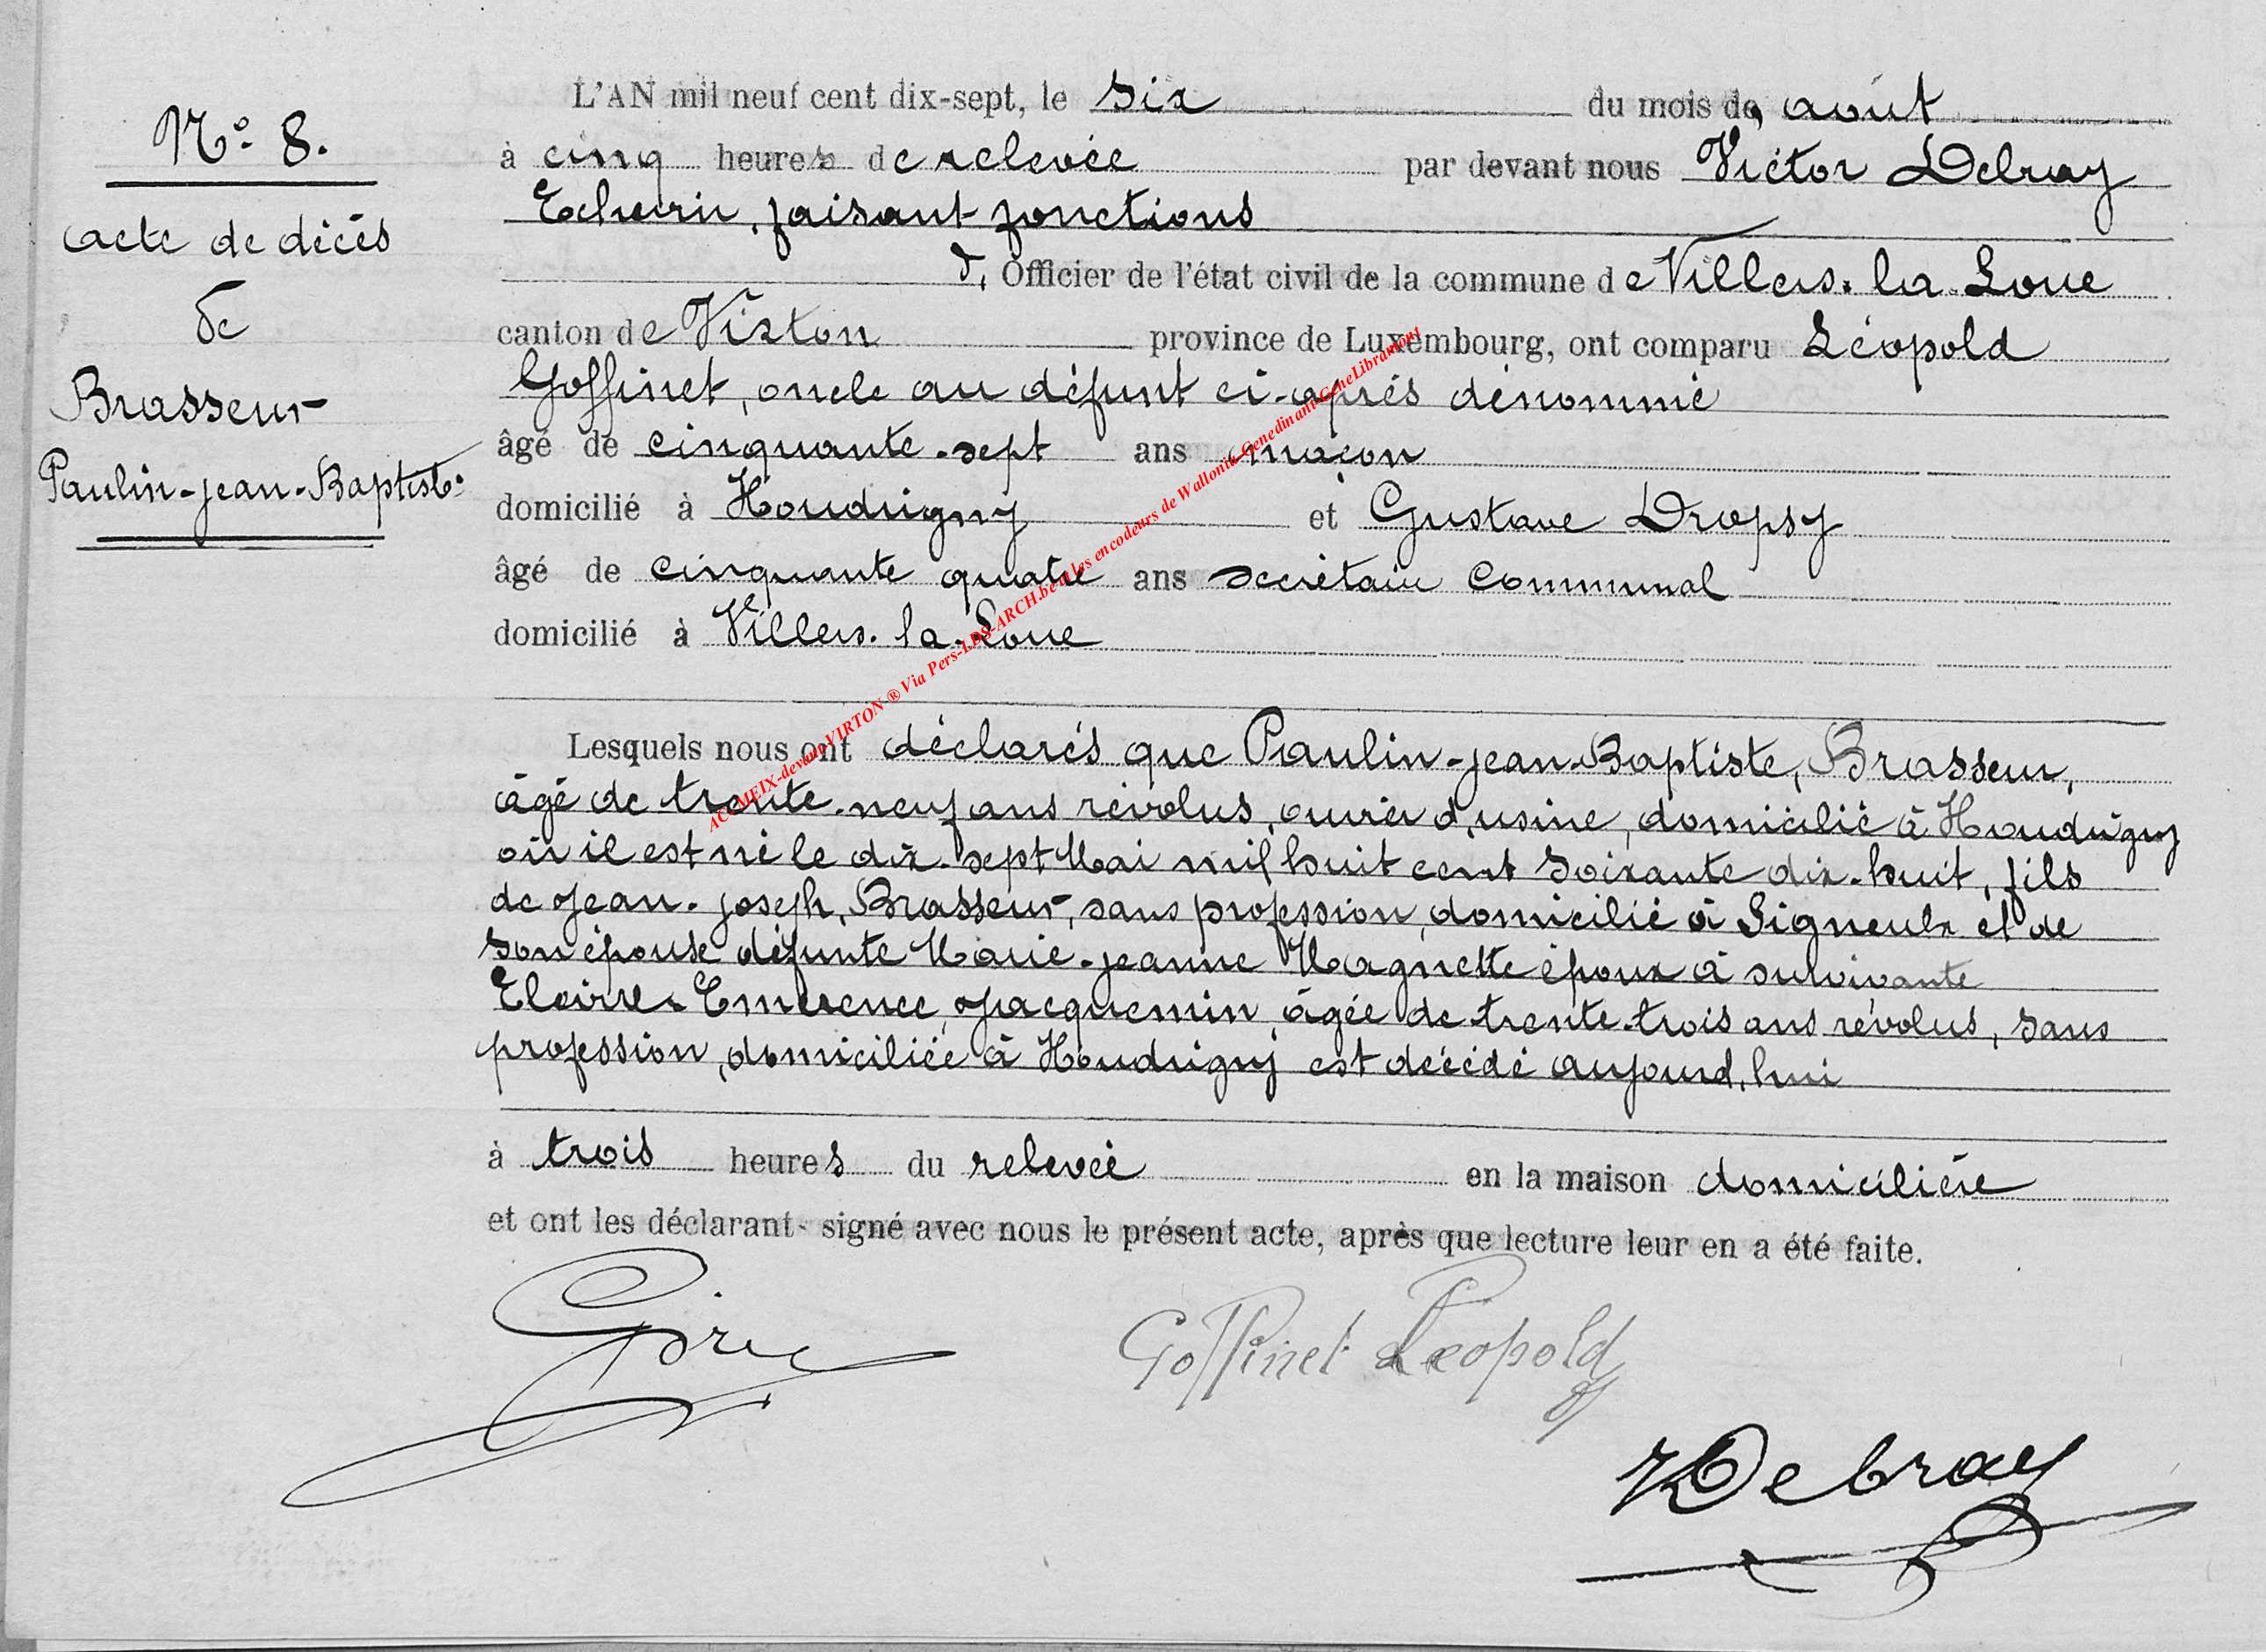 N° 8.
acte de décès
de
Brasseur
Paulin-Jean-Baptiste
L'AN mil neuf cent dix-sept, le six du mois de août
à cinq heures de relevée par devant nous Victor Debray
Echevin, faisant fonctions
d' Officier de l'état civil de la commune de Villers-la-Loue
canton de Virton province de Luxembourg, ont comparu Léopold
Goffinet, oncle au défunt ci-après dénommé
âgé de cinquante-sept ans maçon
domicilié à Houdrigny et Gustave Dropsy
âgé de cinquante quatre ans secrétaire communal
domicilié à Villers-la-Loue
Lesquels nous ont déclarés que Paulin-Jean-Baptiste, Brasseur,
âgé de trente-neuf ans révolus, ouvrier d'usine, domicilié à Houdrigny
où il est né le dix-sept Mai mil huit cent soixante dix-huit, fils
de Jean-Joseph, Brasseur, sans profession, domicilié à Signeulx et de
son épouse défunte Marie-Jeanne Magnette époux à survivante
Emerence, Jacquemin, âgée de trente-trois ans révolus, sans
profession, domiciliée à Houdrigny est décédé aujourd'hui
à trois heures du relevée en la maison domicilière
et ont les déclarant signé avec nous le présent acte, après que lecture leur en a été faite.
Goffinet Léopold
VDebray
AC MEIX-devant-VIRTON ® Via Pers-LDS-ARCH.be et les encodeurs de Wallonia-Genedinant-GeneLibramont